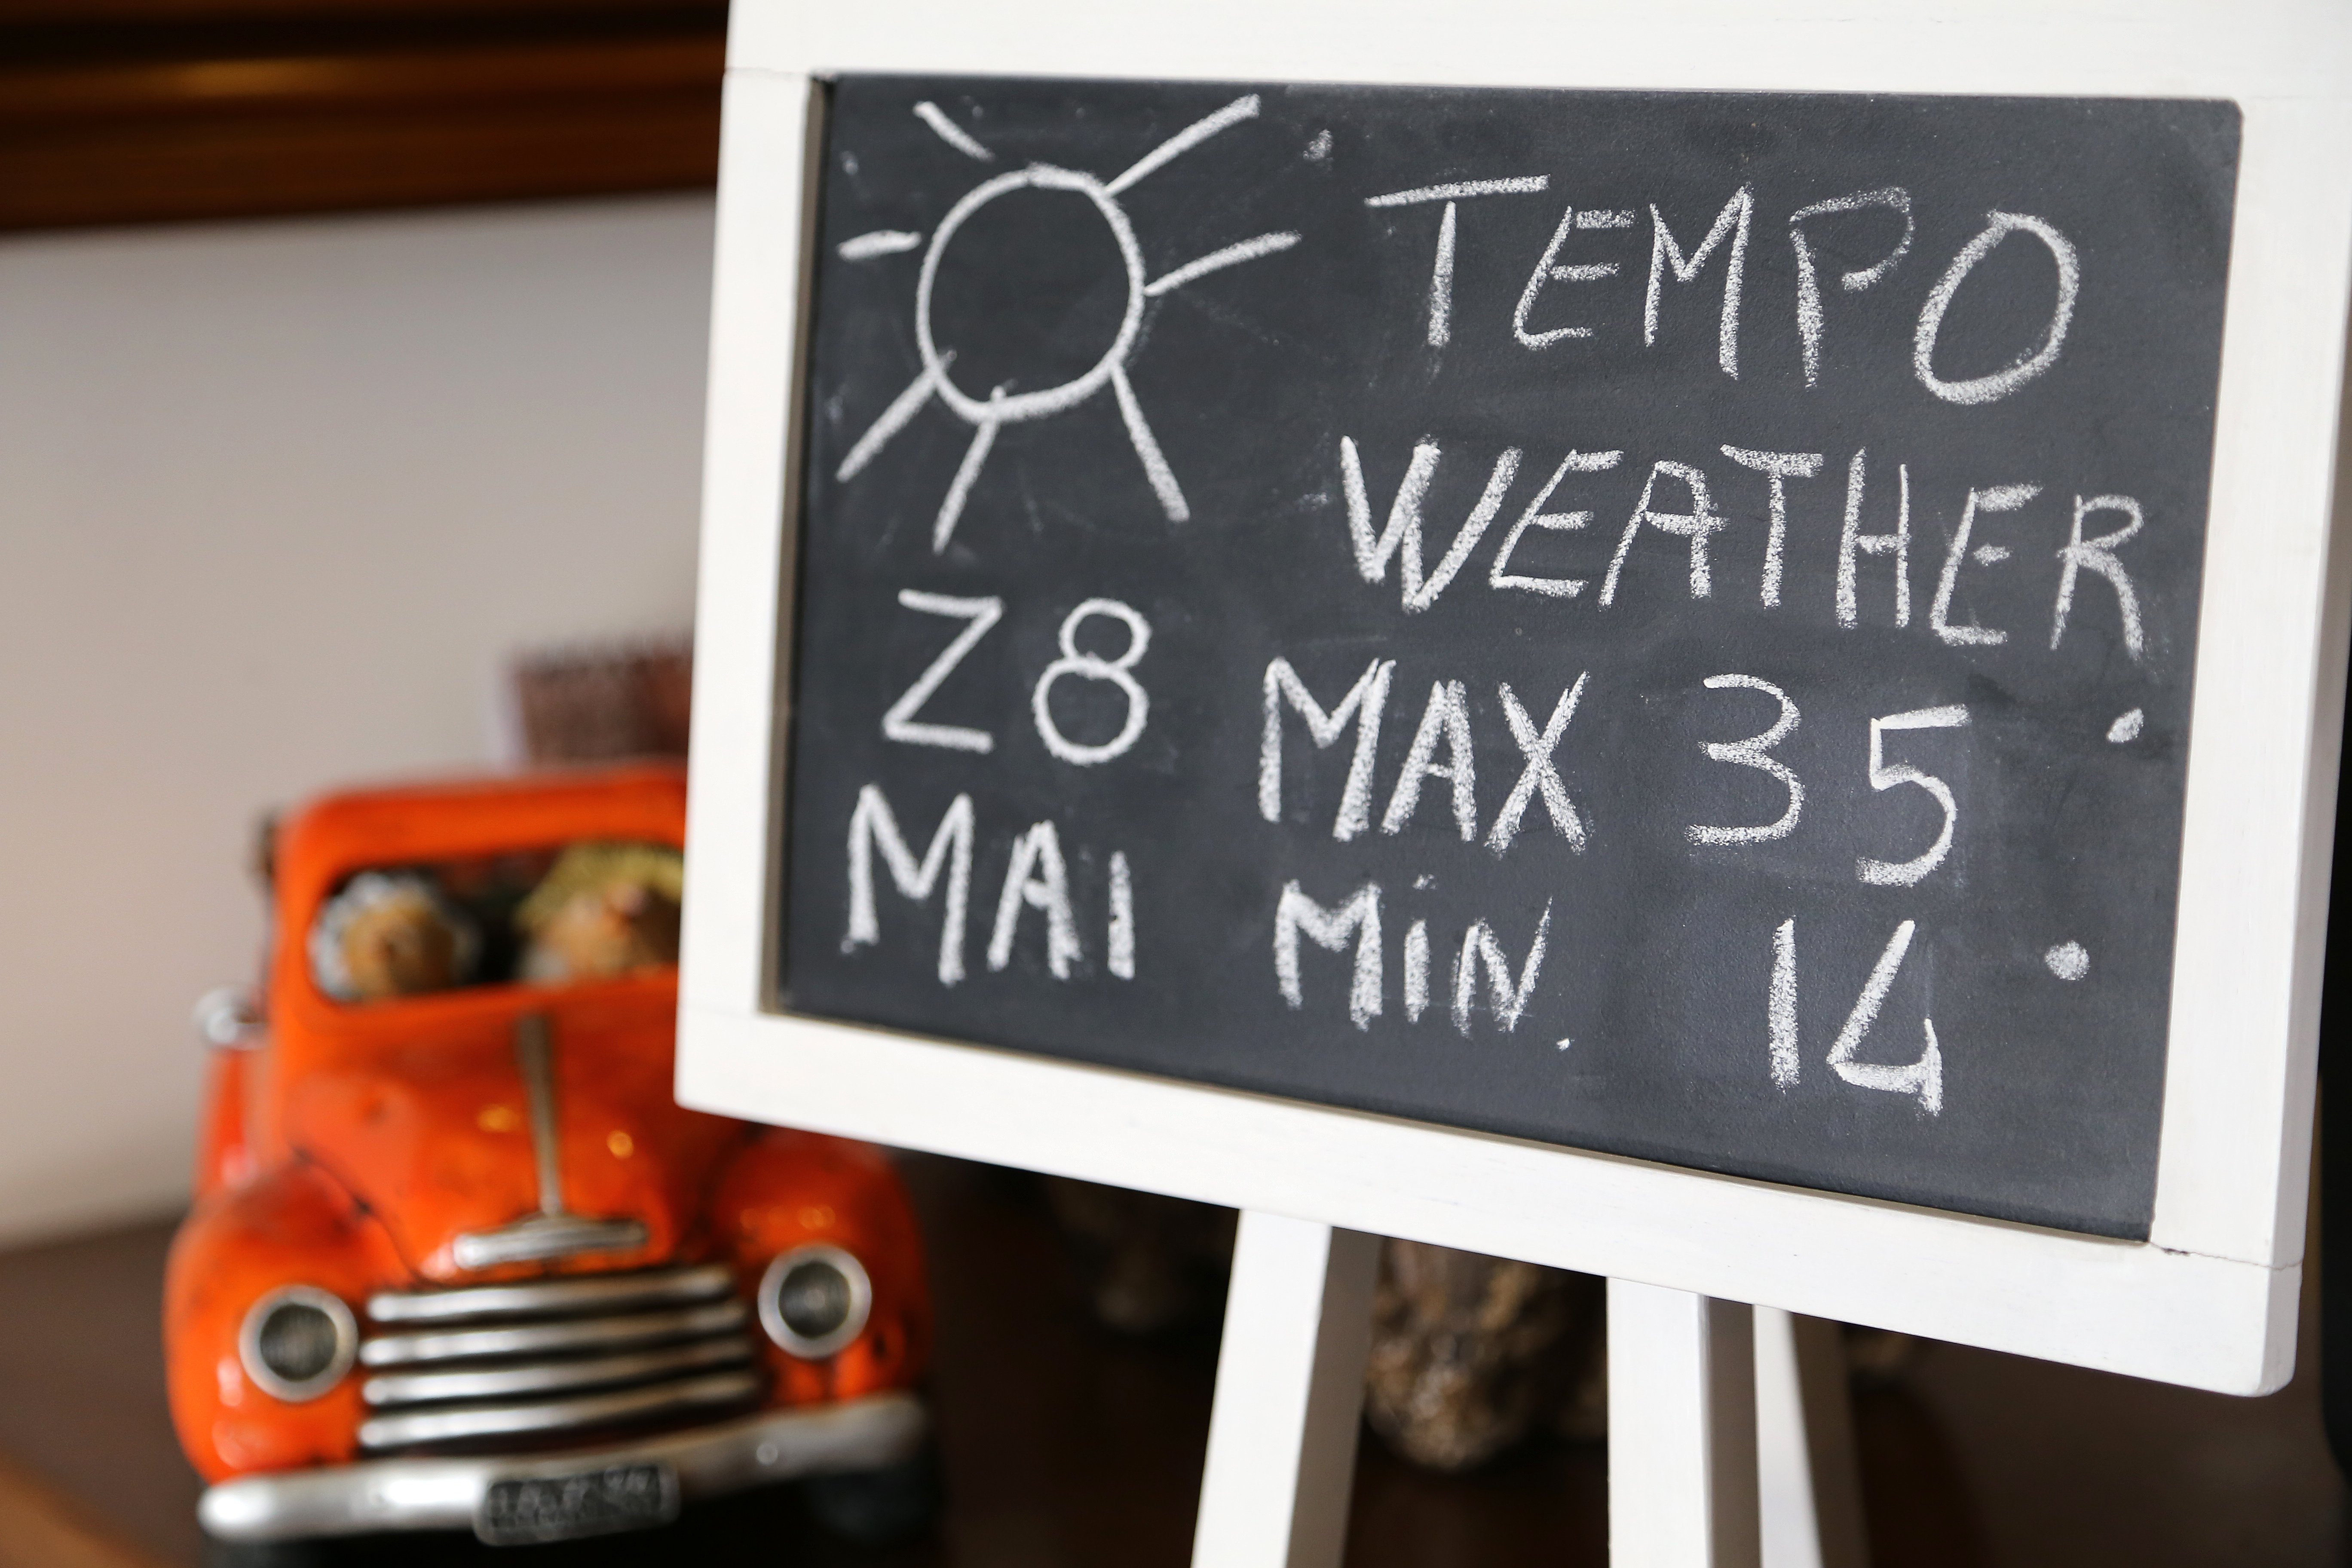 TEMPO
WEATHER
28
MAI
MAX 35°
MIN. 14°